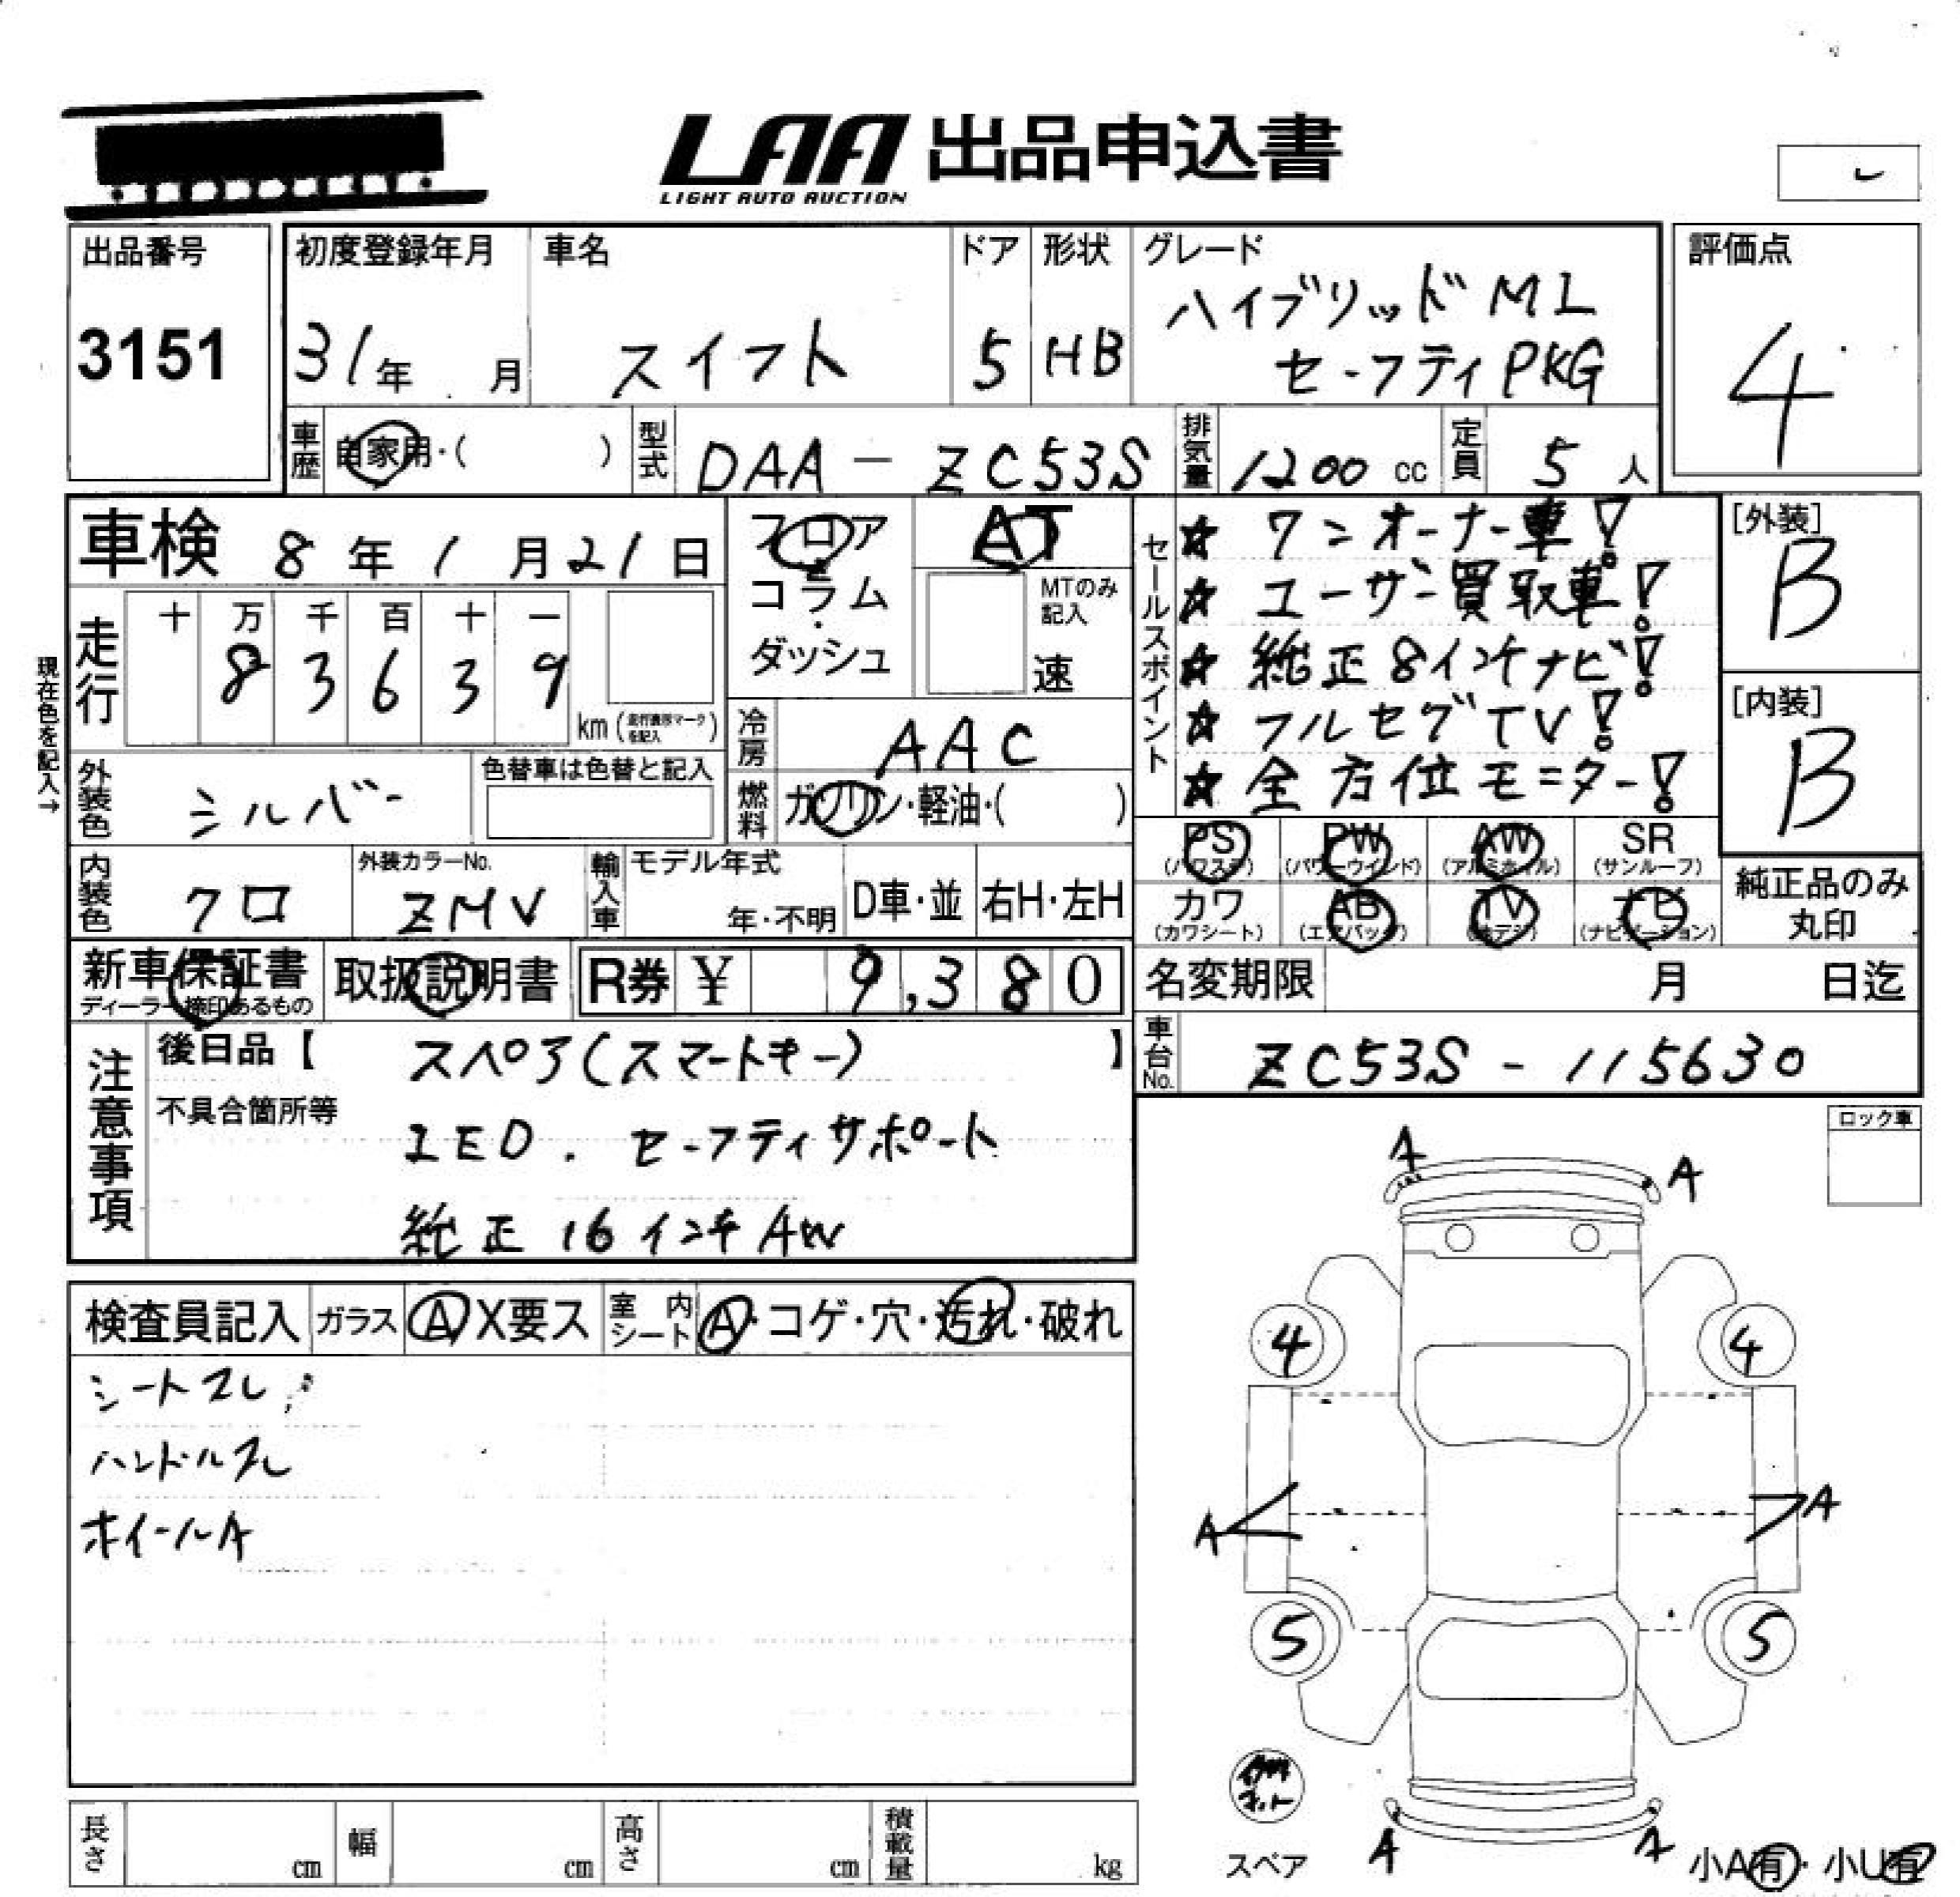 LAA 出品申込書
LIGHT AUTO AUCTION
出品番号
3151
初度登録年月
31年 月
車名
スイフト
ドア
5
形状
HB
グレード
ハイブリッドML
セーフティPKG
評価点
4
車歴 自家用・( )
型式 DAA-ZC53S
排気量 1200 cc
定員 5 人
車検 8年1月21日
フロア
コラム
ダッシュ
AT
MTのみ
記入
速
セールスポイント
☆ワンオーナー車!
☆ユーザー買取車!
☆純正8インチナビ!
☆フルセグTV!
☆全方位モニター!
[外装]
B
[内装]
B
現在色を記入→
走行
十 万 千 百 十 一
8 3 6 3 9
km (走行異形マークを記入)
冷房 AAC
燃料 ガソリン・軽油・( )
外装色 シルバー
色替車は色替と記入
内装色 クロ
外装カラーNo.
ZMV
輸入車
モデル年式
年・不明
D車・並
右H・左H
PS
(パワステ)
PW
(パワーウインド)
AW
(アルミホイル)
SR
(サンルーフ)
カワ
(カワシート)
AB
(エアバック)
TV
(地デジ)
ナビ
(ナビゲーション)
純正品のみ
丸印
新車保証書
ディーラー捺印あるもの
取扱説明書
R券 ¥ 9,380
名変期限 月 日迄
車台No. ZC53S-115630
注意事項
後日品【 スペア(スマートキー) 】
不具合箇所等
LED. セーフティサポート
純正16インチAW
ロック車
検査員記入
ガラス
A X要ス
室内シート
A・コゲ・穴・汚れ・破れ
シートスレ
ハンドルスレ
ホイールA
A
A
4
4
A
A
5
5
スペア
A
A
小A有・小U有
長さ cm
幅 cm
高さ cm
積載量 kg